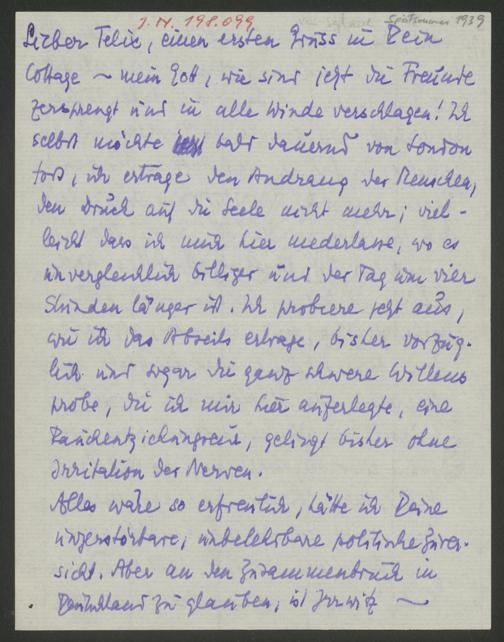 I.N. 198.099
Spätsommer 1939
Lieber Felix, einen ersten Gruss in Dein
Cottage – mein Gott, wie sind jetzt die Freunde
zersprengt und in alle Winde verschlagen! Ich
selbst möchte bald dauernd von London
fort, ich ertrage den Andrang der Menschen,
den Druck auf die Seele nicht mehr; viel-
leicht dass ich mich hier niederlasse, wo es
unvergleichlich billiger und der Tag um vier
Stunden länger ist. Ich probiere jetzt aus,
wie ich das Abseits ertrage, bisher vorzüg-
lich und sogar die ganz schwere Willens
probe, die ich mir hier auferlegte, eine
Rauchentziehungscur, gelingt bisher ohne
Irritation der Nerven.
Alles wäre so erfreulich, hätte ich Deine
unzerstörbare, unbelehrbare politische Zuver-
sicht. Aber an den Zusammenbruch in
Deutschland zu glauben, ist Irrwitz –